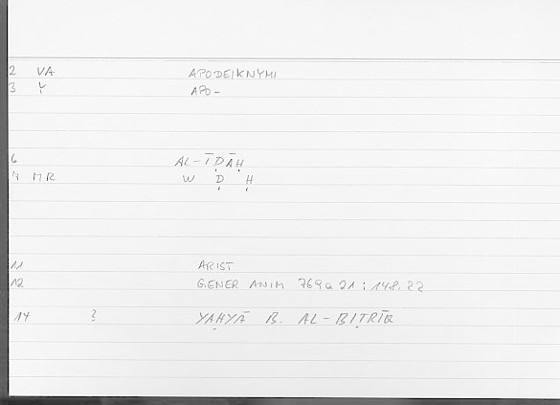 2 VA APODEIKNYMI
3 Y APO-
6 AL-ĪḌĀḤ
7 MR W Ḍ Ḥ
11 ARIST
12 GENER ANIM 769a 21 : 148.22
14 ? YAḤYĀ B. AL-BIṬRĪQ